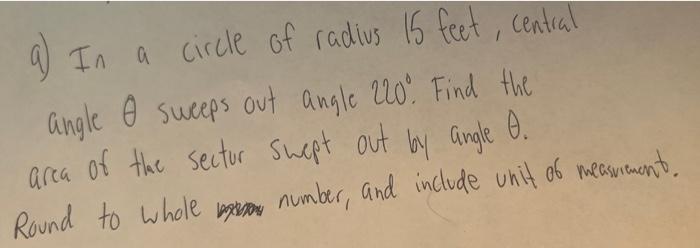 a) In a circle of radius 15 feet, central
angle θ sweeps out angle 220°. Find the
area of the sector swept out by angle θ.
Round to whole number, and include unit of measurement.